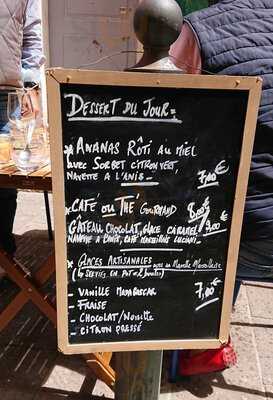 DESSERT DU JOUR =
* ANANAS RÔTI AU MIEL
avec SORBET CITRON VERT,
NAVETTE A L'ANIS - 7,00€
* CAFÉ ou THÉ GOURMAND 8,00€
GÂTEAU CHOCOLAT, GLACE CARAMEL 9,00€
NAVETTE A L'ANIS, CAFÉ
* GLACES ARTISANALES avec sa
7,00€
- VANILLE MADAGASCAR
- FRAISE
- CHOCOLAT / Noisette
- CITRON PRESSÉ